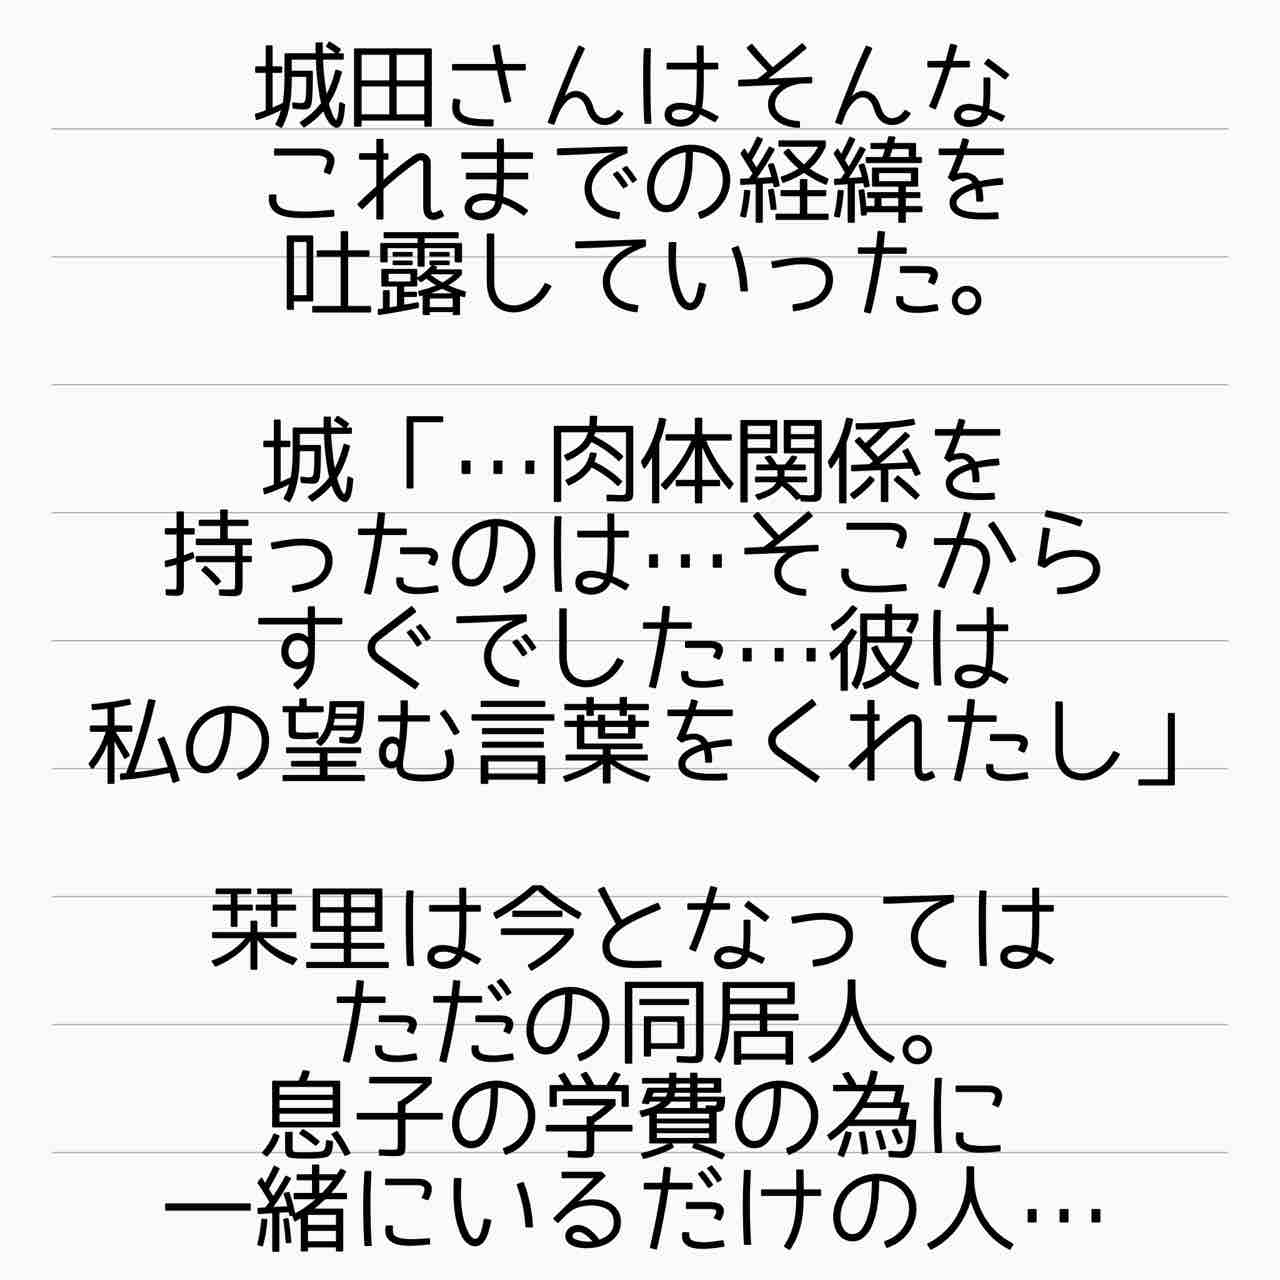 城田さんはそんな
これまでの経緯を
吐露していった。
城「…肉体関係を
持ったのは…そこから
すぐでした…彼は
私の望む言葉をくれたし」
栞里は今となっては
ただの同居人。
息子の学費の為に
一緒にいるだけの人…